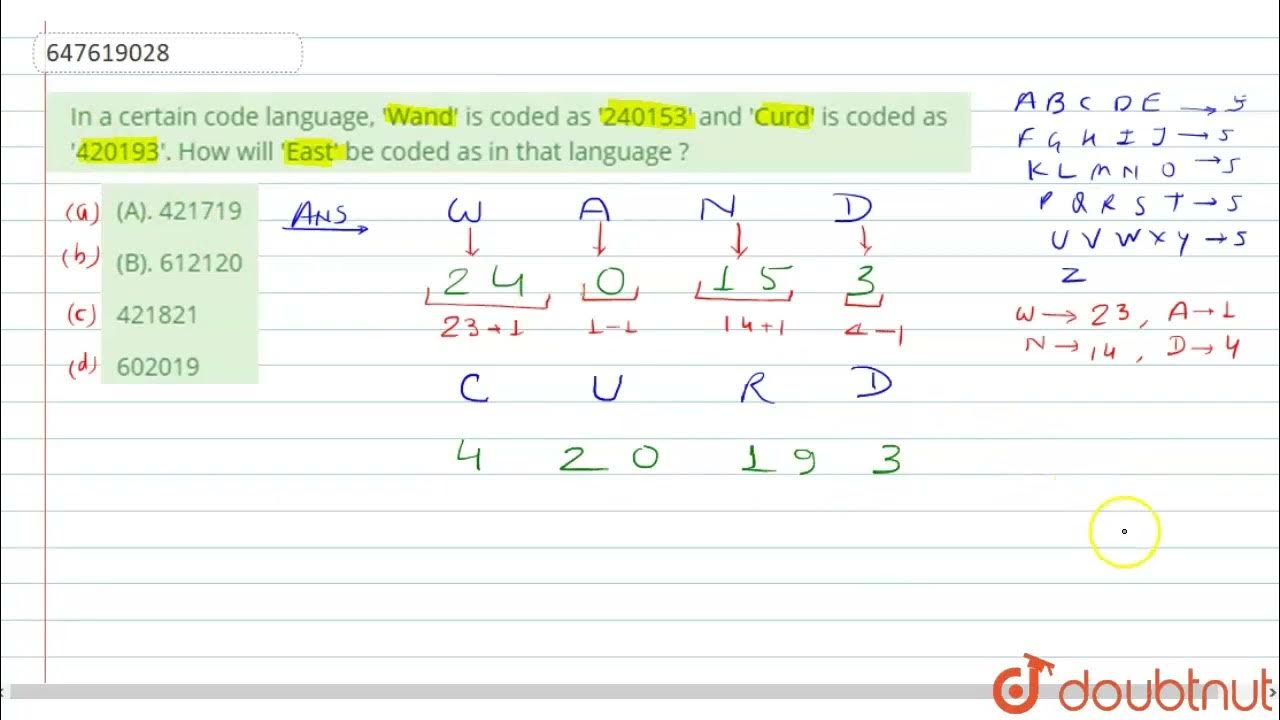 647619028
In a certain code language, 'Wand' is coded as '240153' and 'Curd' is coded as
'420193'. How will 'East' be coded as in that language ?
(a) (A). 421719
(b) (B). 612120
(c) 421821
(d) 602019
ANS
W A N D
24 0 15 3
23+1 1-1 14+1 4-1
C U R D
4 20 19 3
A B C D E → 5
F G H I J → 5
K L M N O → 5
P Q R S T → 5
U V W X Y → 5
Z
W → 23, A → 1
N → 14, D → 4
doubtnut